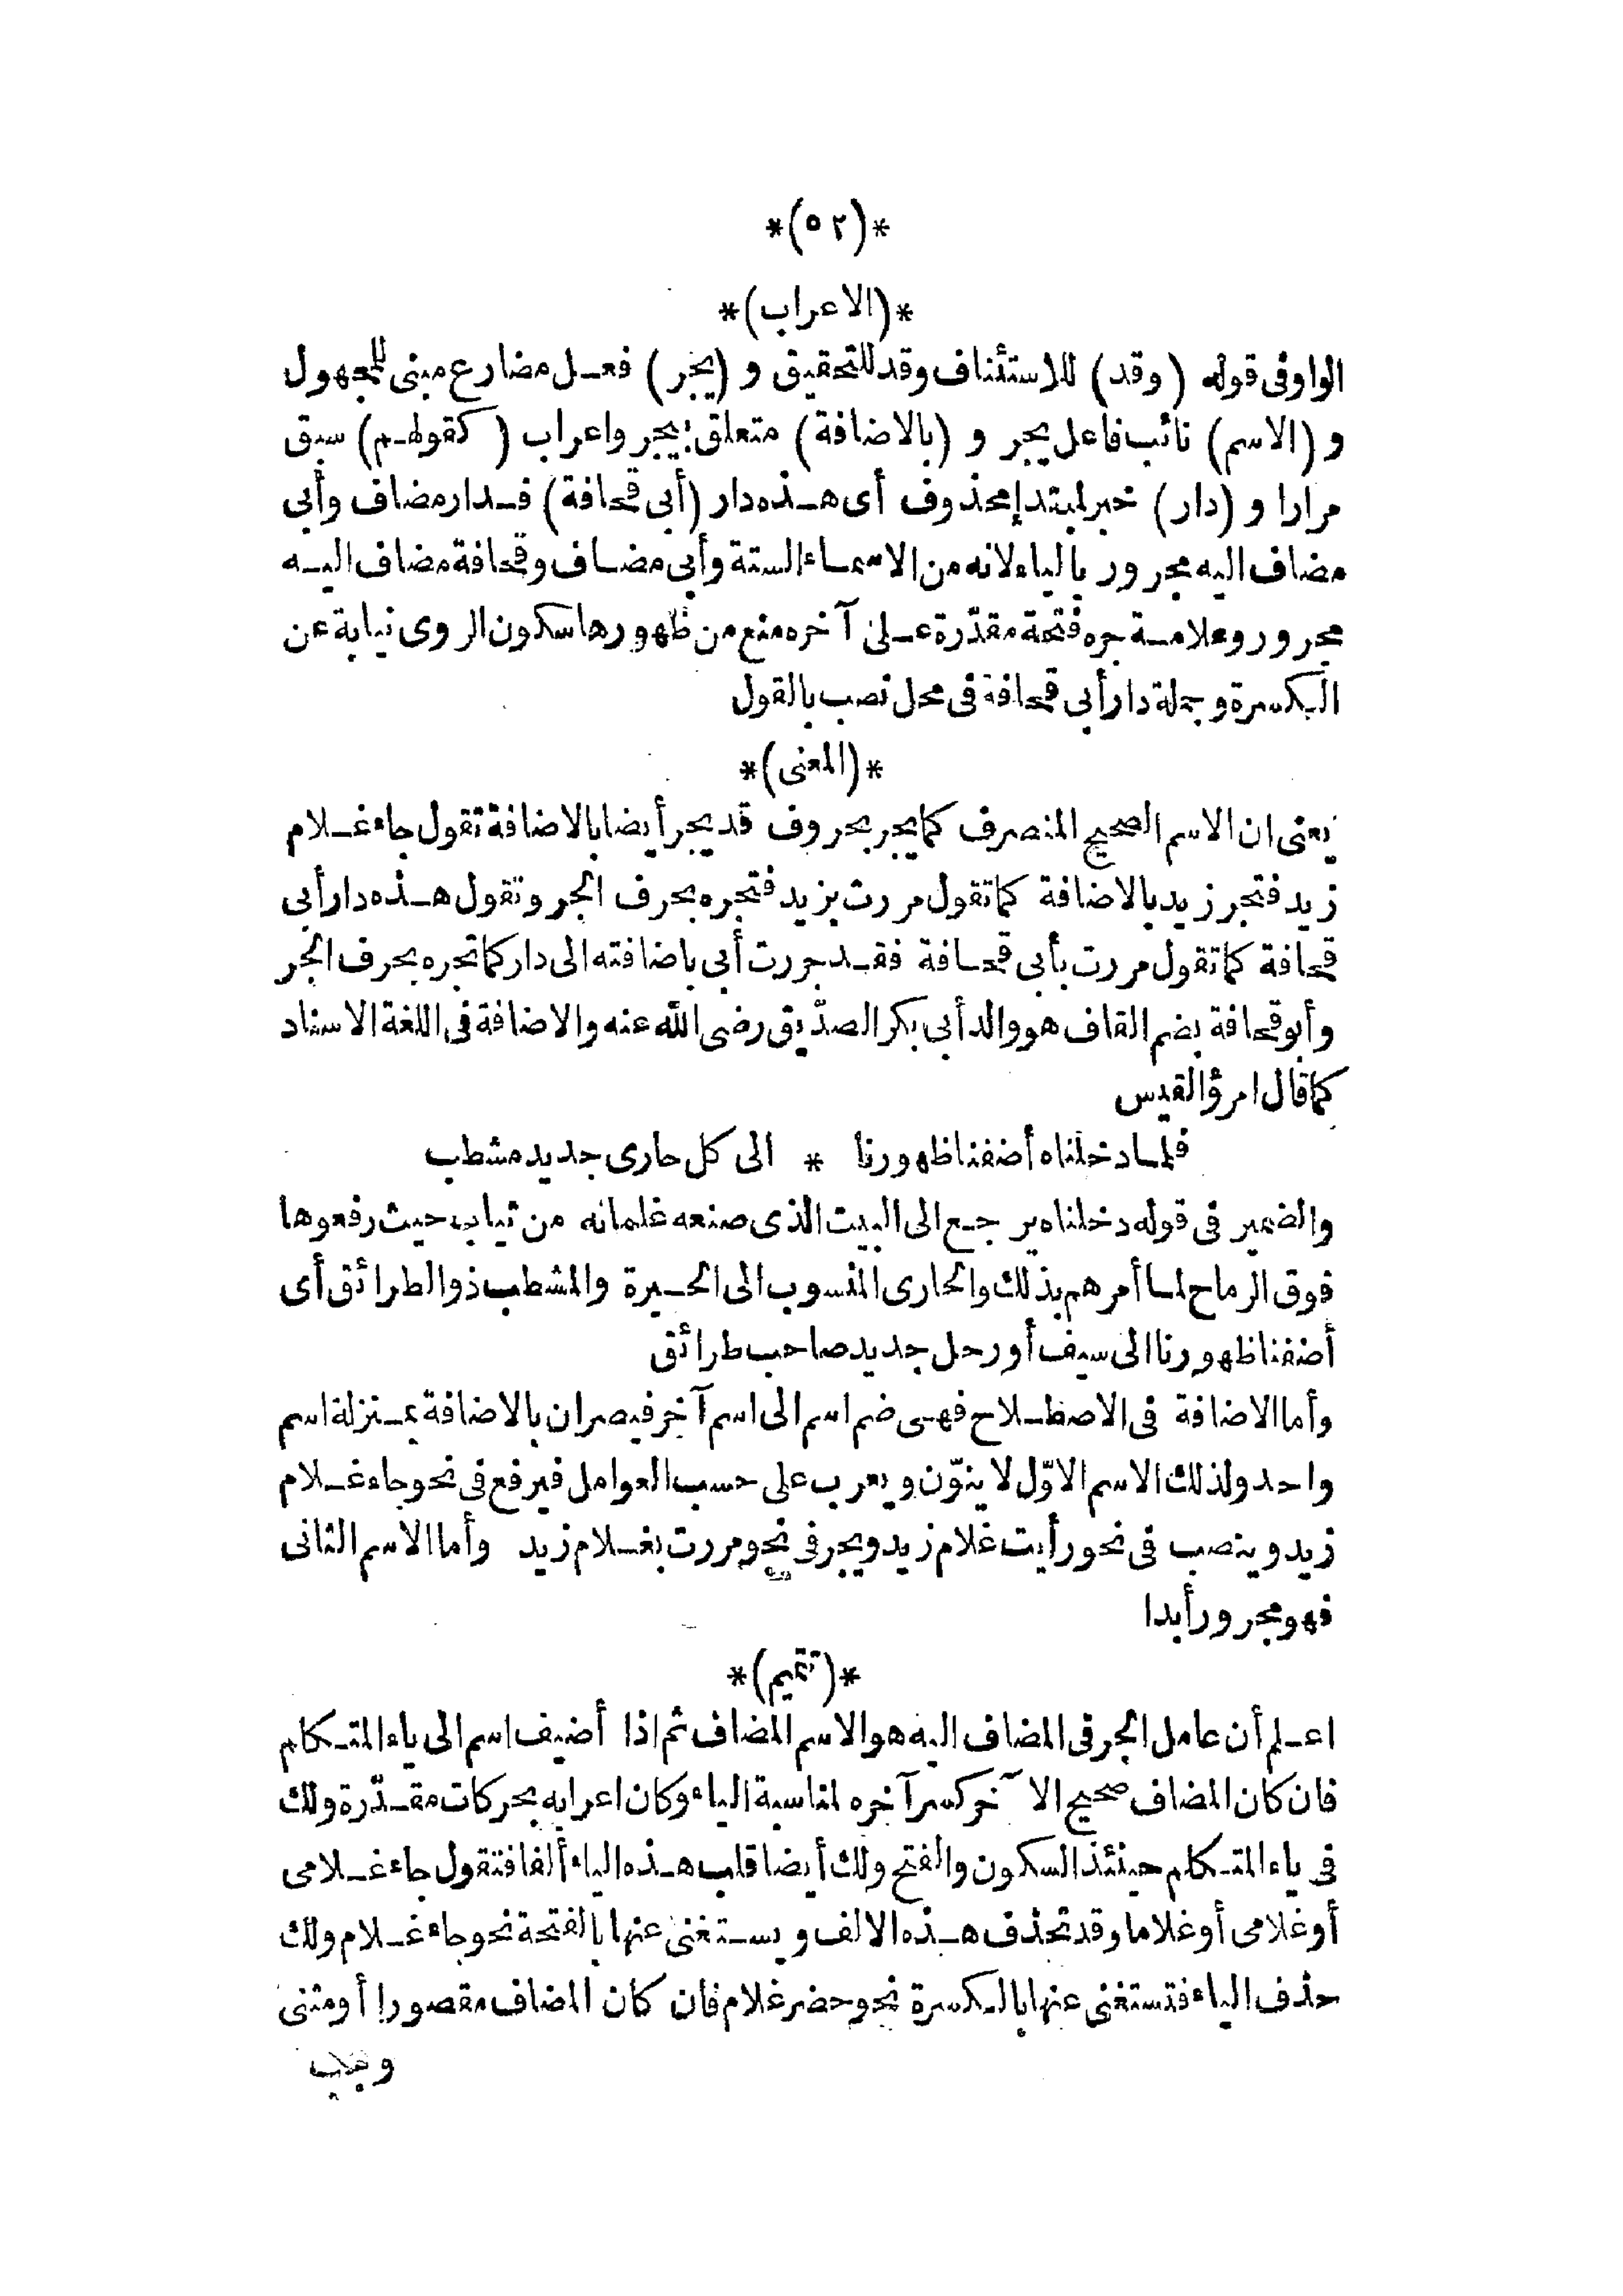 *(٥٢)*
*(الاعراب)*
الواو فى قوله (وقد) للاستئناف وقد للتحقيق و (يجر) فعل مضارع مبنى للمجهول
و (الاسم) نائب فاعل يجر و (بالاضافة) متعلق بيجر واعراب (كقولهم) سبق
مرارا و (دار) خبر لمبتدإ محذوف أى هذه دار (أبى قحافة) فدار مضاف وأبى
مضاف اليه مجرور بالياء لانه من الاسماء الستة وأبى مضاف وقحافة مضاف اليه
مجرور وعلامة جره فتحة مقدّرة على آخره منع من ظهورها سكون الروى نيابة عن
الكسرة وجملة دار أبى قحافة فى محل نصب بالقول
*(المعنى)*
يعنى ان الاسم الصحيح المنصرف كما يجر بحروف قد يجر أيضا بالاضافة تقول جاء غلام
زيد فتجر زيد بالاضافة كما تقول مررت بزيد فتجره بحرف الجر وتقول هذه دار أبى
قحافة كما تقول مررت بأبى قحافة فقد جررت أبى باضافته الى دار كما تجره بحرف الجر
وأبو قحافة بضم القاف هو والد أبى بكر الصدّيق رضى الله عنه والاضافة فى اللغة الاسناد
كما قال امرؤ القيس
فلما دخلناه أضفنا ظهورنا * الى كل حارى جديد مشطب
والضمير فى قوله دخلناه يرجع الى البيت الذى صنعه غلمانه من ثياب حيث رفعوها
فوق الرماح لما أمرهم بذلك والحارى المنسوب الى الحيرة والمشطب ذو الطرائق أى
أضفنا ظهورنا الى سيف أو رحل جديد صاحب طرائق
وأما الاضافة فى الاصطلاح فهى ضم اسم الى اسم آخر فيصران بالاضافة بمنزلة اسم
واحد ولذلك الاسم الاوّل لا ينوّن ويعرب على حسب العوامل فيرفع فى نحو جاء غلام
زيد وينصب فى نحو رأيت غلام زيد ويجر فى نحو مررت بغلام زيد وأما الاسم الثانى
فهو مجرور أبدا
*(تتميم)*
اعلم أن عامل الجر فى المضاف اليه هو الاسم المضاف ثم اذا أضيف اسم الى ياء المتكلم
فان كان المضاف صحيح الآخر كسر آخره لمناسبة الياء وكان اعرابه بحركات مقدّرة ولك
فى ياء المتكلم حينئذ السكون والفتح ولك أيضا قلب هذه الياء ألفا فتقول جاء غلامى
أو غلامى أو غلاما وقد تحذف هذه الالف ويستغنى عنها بالفتحة نحو جاء غلام ولك
حذف الياء فتستغنى عنها بالكسرة نحو حضر غلام فان كان المضاف مقصورا أو مثنى